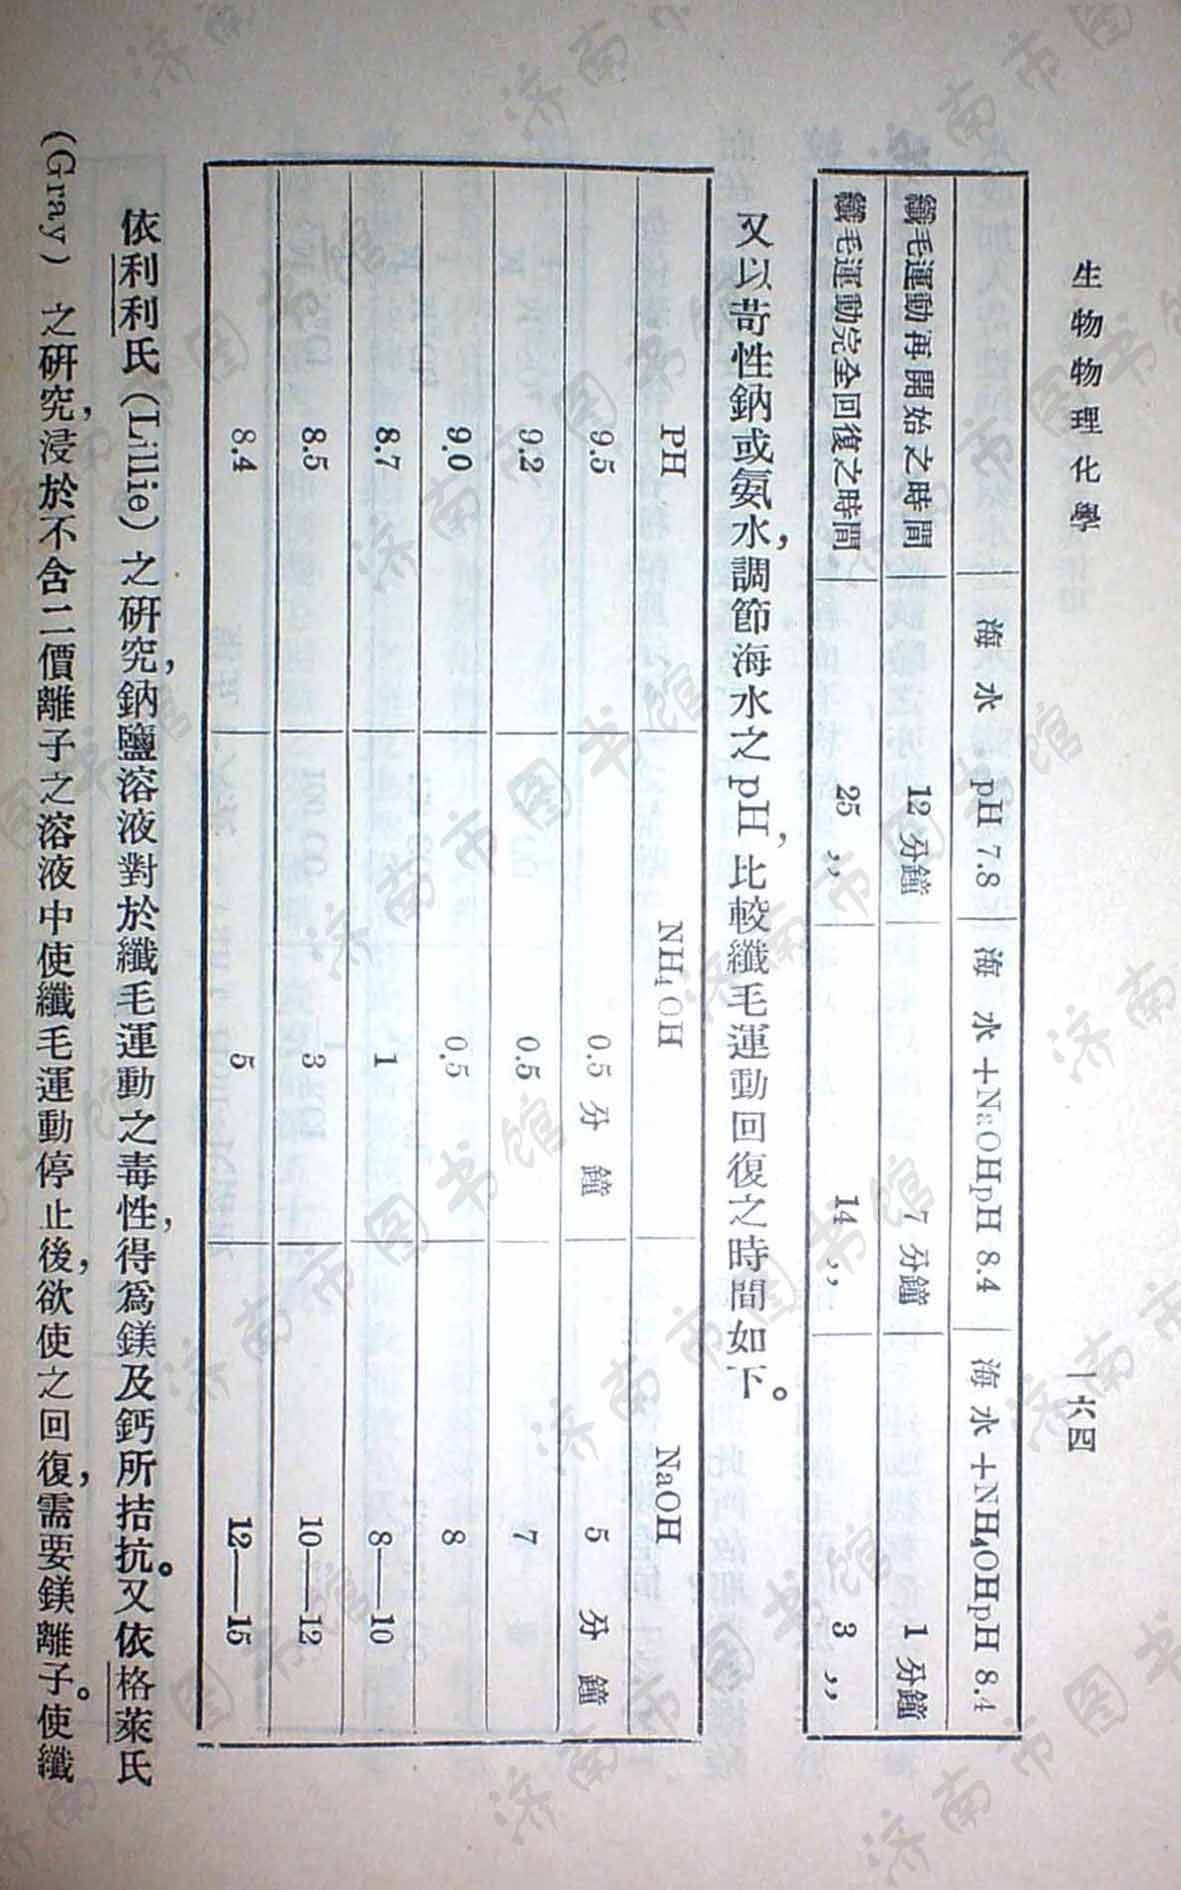 生物物理化學
一六四
海水 pH 7.8 海水+NaOHpH 8.4 海水+NH₄OHpH 8.4
纖毛運動再開始之時間 12分鐘 7分鐘 1分鐘
纖毛運動完全回復之時間 25 ,, 14 ,, 3 ,,
又以苛性鈉或氨水,調節海水之pH,比較纖毛運動回復之時間如下。
PH NH₄OH NaOH
9.5 0.5分鐘 5分鐘
9.2 0.5 7
9.0 0.5 8
8.7 1 8—10
8.5 3 10—12
8.4 5 12—15
依利利氏(Lillie)之研究,鈉鹽溶液對於纖毛運動之毒性,得爲鎂及鈣所拮抗。又依格萊氏
(Gray)之研究,浸於不含二價離子之溶液中使纖毛運動停止後,欲使之回復,需要鎂離子。使纖
济南市图书馆